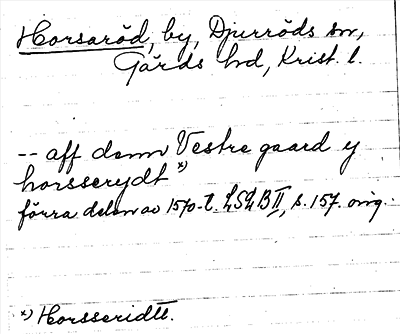 Horsaröd, by, Djurröds sn,
Gärds hd, Krist. l.
-- aff denn Vestre gaard y
horsserydt *)
förra delen av 1570-t. LSLB II, s. 157. orig.
*) Horsseridtt.